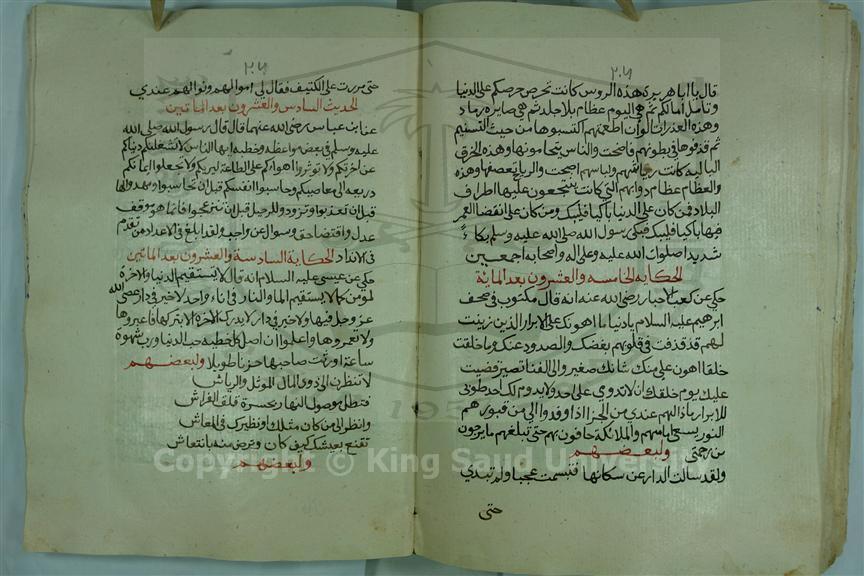 ٢٠٦
قال يا اباهريره هذه الروس كانت تحرص حرصكم على الدنيا
وتامل امالكم ثم هي اليوم عظام بلا جلد ثم هي صايره رمادا
وهذه العذرات الوان اطعمتهم اكتسبوها من حيث اكتسبتم
ثم قذفوها في بطونهم فاصحت والناس يتحامونها وهذه الخرق
الباليه كانت رياشهم ولباسهم اصبحت والرياح تعصفها وهذه
والعظام عظام دوابهم التي كانت ينتجعون عليها اطراف
البلاد فمن كان على الدنيا باكيا فليبك ومن كان على انقضا العمر
فيها باكيا فليبك فبكى رسول الله صلى الله عليه وسلم بكاءً
شديدا صلوات الله عليه وعلى اله واصحابه اجمعين
الحكايه الخامسه والعشرون بعد المائة
حكي عن كعب الاحبار رضي الله عنه انه قال مكتوب في صحف
ابرهيم عليه السلام يا دنيا ما اهونك على الابرار الذين تزينت
لهم قد قذفت في قلوبهم بغضك والصدود عنك وما خلقت
خلقا اهون علي منك شانك صغير والى الفنا تصير قضيت
عليك يوم خلقتك ان لا تدومي على احد ولا يدوم لك احد طوبى
للابرار ماذا لهم عندي من الجزا اذا وفدوا الي من قبورهم
النور يسعى امامهم والملائكة حافون بهم حتى تبلغهم ما يرجون
من رحمتي ولبعضهم
ولقد سالت الدار عن سكانها فتبسمت عجبا ولم تبدي
حتى
٢٠٦
حتى مررت على الكنيف فقال لي اموالهم ونوالهم عندي
الحديث السادس والعشرون بعد الماتين
عن ابن عباس رضي الله عنهما قال قال رسول الله صلى الله
عليه وسلم في بعض مواعظه وخطبه ايها الناس لا تشغلنكم دنياكم
عن اخرتكم ولا توثروا اهواكم على الطاعة لبريكم ولا تجعلوا ايمانكم
دريعه الى معاصيكم وحاسبوا انفسكم قبل ان تحاسبوا ومهدوا لها
قبل ان تعذبوا وتزودو للرحيل قبل ان تنزعجوا فانما هو موقف
عدل واقتضا حق وسوال عن واجب ولقد ابلغ في الاعذار من تقدم
في الانذار الحكاية السادسة والعشرون بعد الماتين
حكي عن عيسى عليه السلام انه قال لا يستقيم الدنيا والاخرة
لمومن كما لا يستقيم الما والنار في اناء واحد لا خير في دار عصى الله
عز وجل فيها ولا خير في دار لا يدرك الاخرة الا بتركها فاعبروها
ولا تعمروها واعلموا ان اصل كل خطيه حب الدنيا ورب شهوة
ساعة اورثت صاحبها حزنا طويلا ولبعضهم
لا تنظرن الى ذوي المال الموثل والرياش
فتظل موصول النهار بحسرة قلق الفراش
وانظر الى من كان مثلك او نظيرك في المعاش
تقنع بعيشك كيف كان وترض منه بانتعاش
ولبعضهم
Copyright © King Saud University